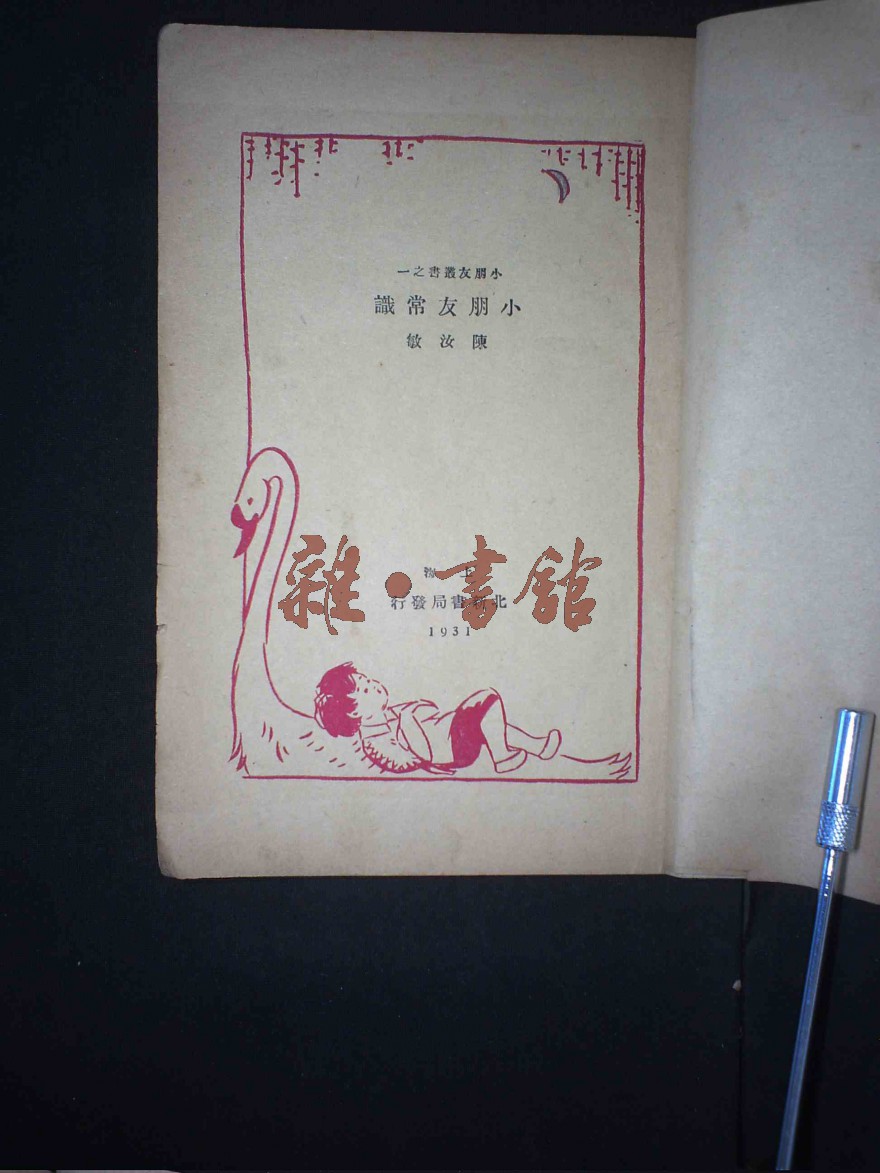 小朋友叢書之一
小朋友常識
陳汝敏
上海
北新書局發行
1931
雜·書館